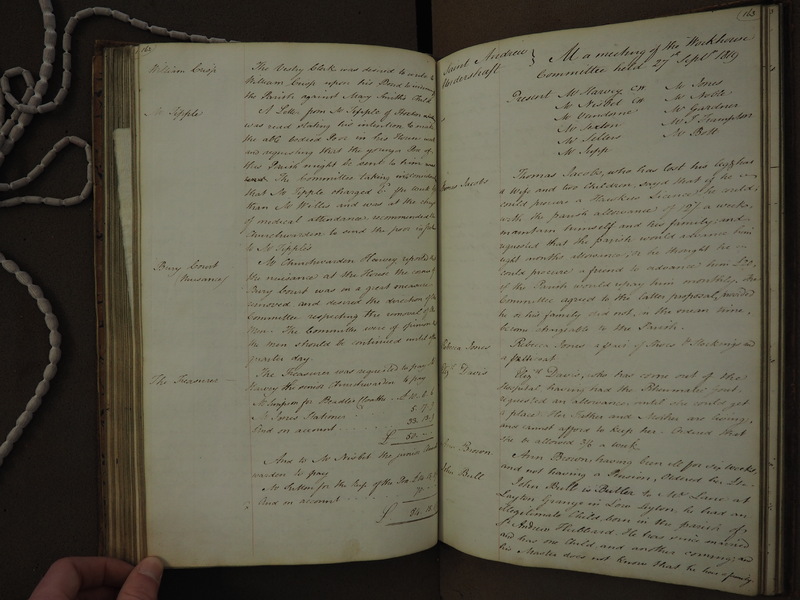 William Crisp
The Vestry Clerk was desired to write to
William Crisp upon his Bond to indemnify
the Parish against Mary Smiths Child
Mr Tipple
A Letter from Mr Tipple of Hoxton
was read stating his intention to
the able bodied Poor in his House
and requesting that the younger Poor of
this Parish might be sent to him
The Committee taking into
that Mr Tipple charged
than Mr Willis and was at the
of medical attendance recommended the
Churchwarden to send the poor
to Mr Tipple's
Bury Court
Nuisance
Mr Churchwarden Harvey reported
the nuisance at the House the corner of
Bury Court was in a great measure
removed and desired the direction of the
Committee respecting the removal of the
Men. The Committee were of opinion
the Men should be continued until
quarter day.
The Treasurer
The Treasurer was requested to pay
Harvey the senior Churchwarden to pay
Mr Simpson for Beadles Cloaths
Mr Jones Stationer
And on account
£ 50
And to Mr Nisbet the junior
warden to pay
Mr Sutton for the keep of the Poor
And on account
£
163
Saint Andrew
Undershaft
At a meeting of the Workhouse
Committee held 27th Septr 1819
Present Mr Harvey CW
Mr Jones
Mr Nisbet CW
Mr Noble
Mr Vandome
Mr Gardner
Mr Sexton
Mr Sellers
Mr Bott
Mr Tapp
Thomas Jacobs
Thomas Jacobs, who has lost his leg, has
a Wife and two Children, said that if he
could procure a Hawkers Licence he could,
with the parish allowance of 10/ a week,
maintain himself and his family, and
requested that the parish would advance him
eight months allowance, or he thought he
could procure a friend to advance him £20,
if the Parish would repay him monthly. The
Committee agreed to the latter proposal, provided
he or his family did not, in the mean time,
become chargeable to the Parish.
Rebecca Jones
Rebecca Jones a pair of Shoes & Stockings and
a petticoat
Elizth Davis
Elizth Davis, who has come out of the
Hospital having had the Rheumatic Gout
requested an allowance until she could get
a place. Her Father and Mother are living,
and cannot afford to keep her. Ordered that
she be allowed 3/6 a week.
Ann Brown
Ann Brown, having been ill for six weeks,
and not having a Pension, Ordered
John Bull
John Bull is Butler to Mr Lane at
Leyton Grange in Low Leyton, he had an
illegitimate Child born in the parish of
St Andrew Hubbard. He has since married
and has one Child, and another coming; and
his Master does not know that he has a family